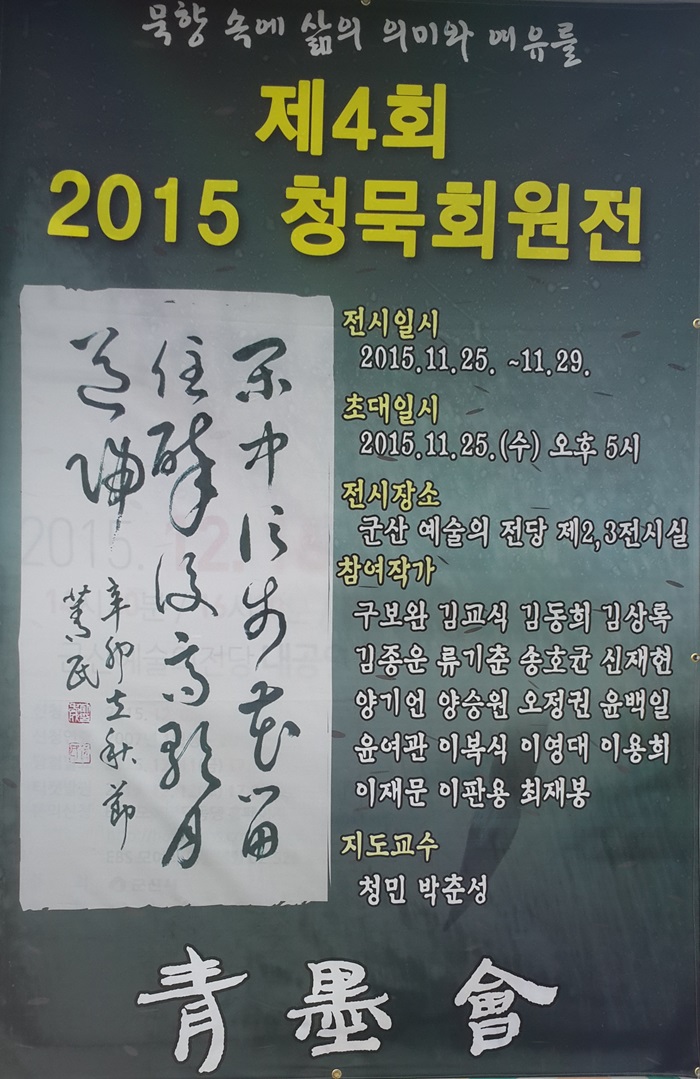 묵향 속에 삶의 의미와 여유를
제4회
2015 청묵회원전
전시일시
2015.11.25. ~11.29.
초대일시
2015.11.25.(수) 오후 5시
전시장소
군산 예술의 전당 제2,3전시실
참여작가
구보완 김교식 김동희 김상록
김종운 류기춘 송호균 신재현
양기언 양승원 오정권 윤백일
윤여관 이복식 이영대 이용희
이재문 이판용 최재봉
지도교수
청민 박춘성
閑中信步花留
住醉後高歌月
送歸
辛卯立秋節
菁民
青墨會